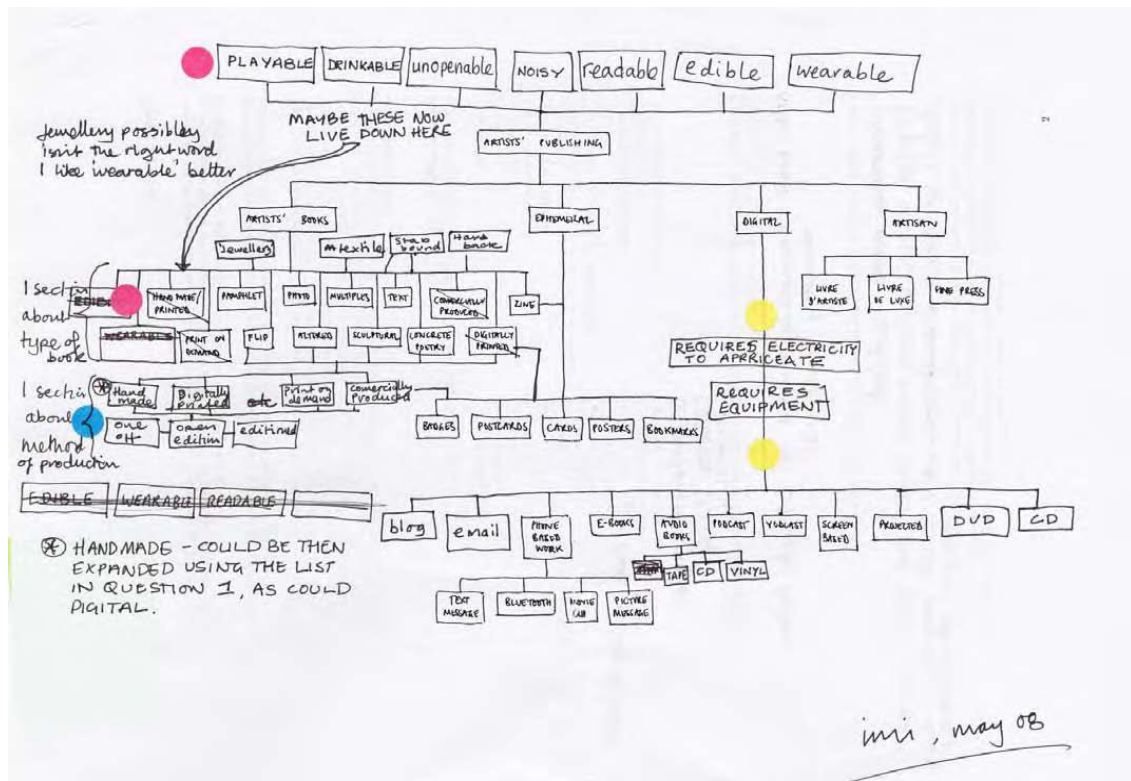 PLAYABLE
DRINKABLE
unopenable
NOISY
readable
edible
wearable
MAYBE THESE NOW
LIVE DOWN HERE
Jewellery possibley
isn't the right word
I like 'wearable' better
ARTISTS' PUBLISHING
ARTISTS' BOOKS
EPHEMERAL
DIGITAL
ARTISAN
Jewellery
textile
Stab
bound
Hard
backe
1 sectin
about
type of
book
HANDMADE/
PRINTED
PAMPHLET
PHOTO
MULTIPLES
TEXT
COMERCIALLY
PRODUCED
ZINE
LIVRE
D'ARTISTE
LIVRE
DE LUXE
FINE PRESS
WEARABLE
PRINT ON
DEMAND
FLIP
ALTERED
SCULPTURAL
CONCRETE
POETRY
DIGITALLY
PRINTED
REQUIRES ELECTRICITY
TO APPRICEATE
REQUIRES
EQUIPMENT
1 sectin
about
method
of productin
Hand
made
Digitally
printed
etc
Print on
demand
Comercially
Produced
one
off
open
editin
editined
BADGES
POSTCARDS
CARDS
POSTERS
BOOKMARKS
EDIBLE
WEARABLE
READABLE
blog
email
PHONE
BASED
WORK
E-BOOKS
AUDIO
BOOKS
PODCAST
VODCAST
SCREEN
BASED
PROJECTED
DVD
CD
TAPE
CD
VINYL
TEXT
MESSAGE
BLUETOOTH
MOVIE
CLIP
PICTURE
MESSAGE
* HANDMADE - COULD BE THEN
EXPANDED USING THE LIST
IN QUESTION 1, AS COULD
DIGITAL.
imi, may 08